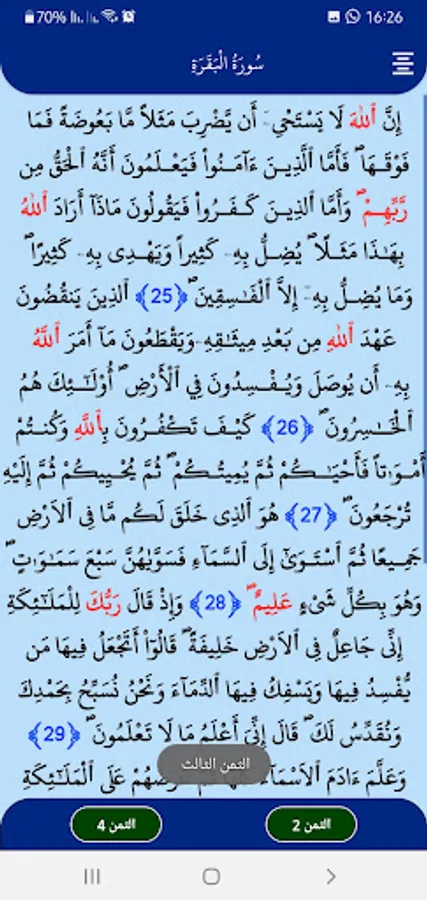 70% 16:26
سُورَةُ الْبَقَرَةِ
إِنَّ اَ۬للَّهَ لَا يَسْتَحْيِۦٓ أَنْ يَّضْرِبَ مَثَلاً مَّا بَعُوضَةً فَمَا
فَوْقَهَاۖ فَأَمَّا اَ۬لذِينَ ءَامَنُواْ فَيَعْلَمُونَ أَنَّهُ اُ۬لْحَقُّ مِن
رَّبِّهِمْۖ وَأَمَّا اَ۬لذِينَ كَفَرُواْ فَيَقُولُونَ مَاذَآ أَرَادَ اَ۬للَّهُ
بِهَٰذَا مَثَلاًۖ يُضِلُّ بِهِۦ كَثِيراً وَيَهْدِى بِهِۦ كَثِيراًۖ
وَمَا يُضِلُّ بِهِۦٓ إِلاَّ اَ۬لْفَٰسِقِينَۖ ﴿25﴾ اَ۬لذِينَ يَنقُضُونَ
عَهْدَ اَ۬للَّهِ مِن بَعْدِ مِيثَٰقِهِۦ وَيَقْطَعُونَ مَآ أَمَرَ اَ۬للَّهُ
بِهِۦٓ أَن يُوصَلَ وَيُفْسِدُونَ فِي اِ۬لْأَرْضِۖ أُوْلَٰٓئِكَ هُمُ
اُ۬لْخَٰسِرُونَۖ ﴿26﴾ كَيْفَ تَكْفُرُونَ بِاللَّهِ وَكُنتُمْ
أَمْوَٰتاً فَأَحْيَٰكُمْ ثُمَّ يُمِيتُكُمْۖ ثُمَّ يُحْيِيكُمْ ثُمَّ إِلَيْهِ
تُرْجَعُونَۖ ﴿27﴾ هُوَ اَ۬لذِى خَلَقَ لَكُم مَّا فِى اِ۬لَارْضِ
جَمِيعًا ثُمَّ اَ۪سْتَوَىٰٓ إِلَى اَ۬لسَّمَآءِ فَسَوَّىٰهُنَّ سَبْعَ سَمَٰوَٰتٍۖ
وَهُوَ بِكُلِّ شَىْءٍ عَلِيمٌۖ ﴿28﴾ وَإِذْ قَالَ رَبُّكَ لِلْمَلَٰٓئِكَةِ
إِنِّى جَاعِلٌ فِى اِ۬لَارْضِ خَلِيفَةًۖ قَالُوٓاْ أَتَجْعَلُ فِيهَا مَن
يُّفْسِدُ فِيهَا وَيَسْفِكُ فِيهَا اَ۬لدِّمَآءَ وَنَحْنُ نُسَبِّحُ بِحَمْدِكَ
وَنُقَدِّسُ لَكَۖ قَالَ إِنِّىَ أَعْلَمُ مَا لَا تَعْلَمُونَۖ ﴿29﴾
وَعَلَّمَ ءَادَمَ اَ۬لَاسْمَآءَ عَلَى اَ۬لْمَلَٰٓئِكَةِ
الثمن الثالث
الثمن 4 الثمن 2